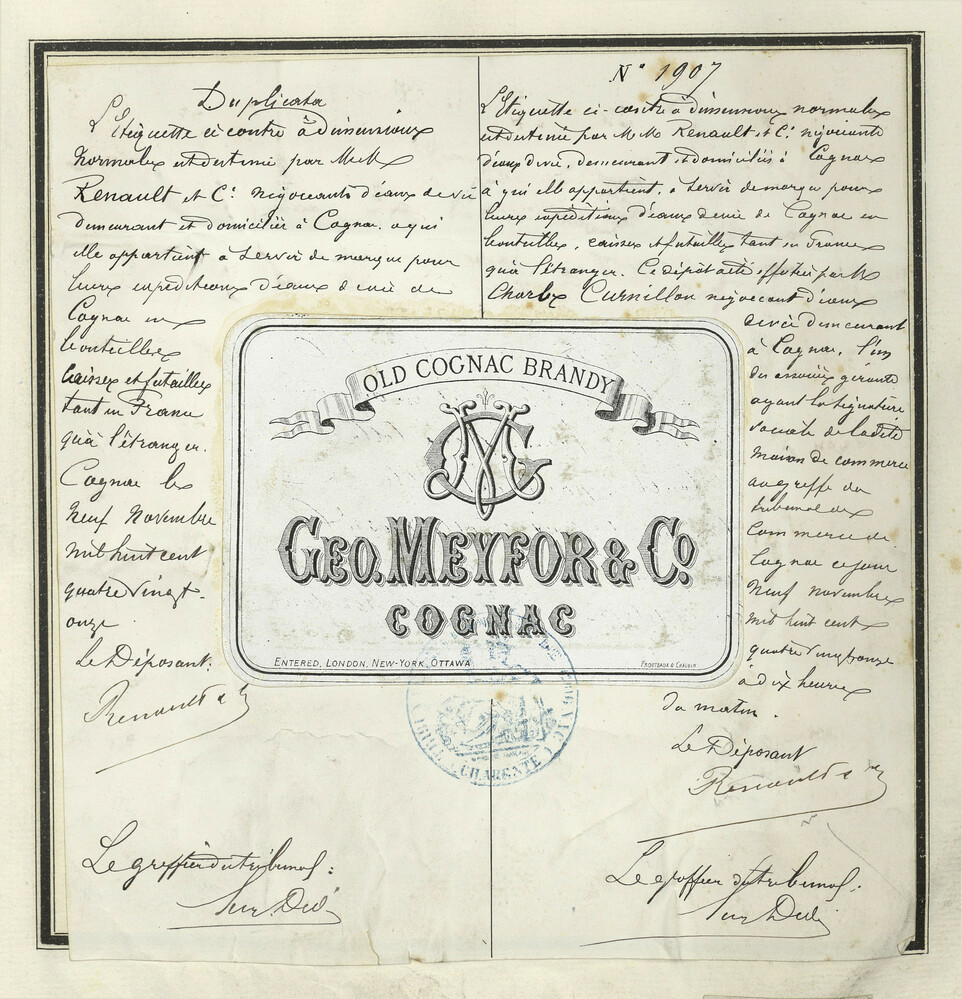 Duplicata
L'Etiquette ci contre à dimensions
normales est destinée par M.M.
Renault et Cie négociants d'eaux de vie
demeurant et domiciliés à Cognac, a qui
elle appartient à servir de marque pour
leurs expéditions d'eaux de vie de
Cognac en
bouteilles
caisses et futailles
tant en France
qu'à l'étranger.
Cognac le
Neuf Novembre
mil huit cent
quatre vingt
onze
Le Déposant.
Renault
Le greffier du tribunal :
N° 1907
L'Etiquette ci-contre à dimensions normales
est destinée par M.M. Renault et Cie négociants
d'eaux de vie, demeurant et domiciliés à Cognac
à qui elle appartient, à servir de marque pour
leurs expéditions d'eaux de vie de Cognac en
bouteilles, caisses et futailles tant en France
qu'à l'étranger. Ce dépôt a été effectué par M
Charles Curnillon négociant d'eaux
de vie demeurant
à Cognac, l'un
des associés gérants
ayant la signature
sociale de ladite
maison de commerce
au greffe du
tribunal de
Commerce de
Cognac ce jour
Neuf novembre
mil huit cent
quatre vingt onze
à dix heures
du matin.
Le Déposant
Renault
Le greffier du tribunal.
OLD COGNAC BRANDY
GM
GEO. MEYFOR & Co.
COGNAC
ENTERED, LONDON, NEW-YORK, OTTAWA
CHARENTE